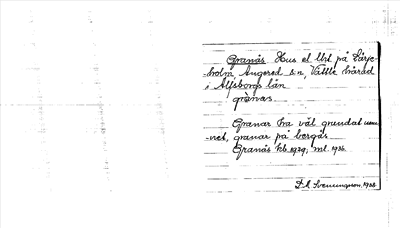 Granås Hus el. lht på Lärje-
holm, Angered s:n, Vättle härad
i Älfsborgs län.
grànas.
Granar bra väl grundat
-net, granar på bergås.
Granås kb. 1929, ml. 1936.
D. A. Svenningson, 1938